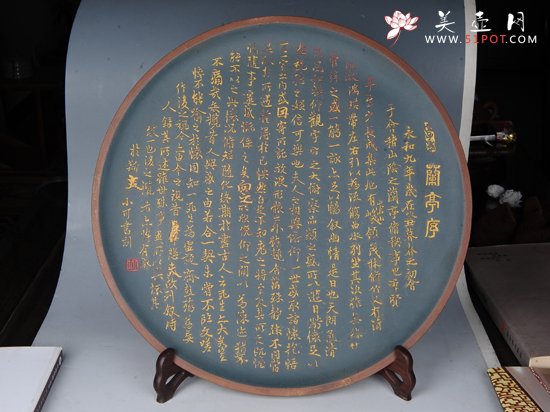 美壶网
WWW.51POT.COM
蘭亭序
永和九年歲在癸丑暮春之初會
于會稽山陰之蘭亭脩稧事也羣賢
畢至少長咸集此地有峻領茂林脩竹又有清
流激湍帶左右引以為流觴曲水列坐其次雖無絲竹
管弦之盛一觴一詠亦足以暢敘幽情是日也天朗氣清
惠風和暢仰觀宇宙之大俯察品類之盛所以遊目騁懷足以
極視聽之娛信可樂也夫人之相與俯仰一世或取諸懷抱悟
言一室之內或因寄所託放浪形骸之外雖趣舍萬殊靜躁不同當
其欣於所遇得於己快然自足不知老之將至及其所之既惓
情隨事遷感慨係之矣向之所欣俛仰之間以為陳迹猶
不能不以之興懷況脩短隨化終期於盡古人云死生亦大矣豈
不痛哉每攬昔人興感之由若合一契未嘗不臨文嗟
悼不能喻之於懷固知一死生為虛誕齊彭殤為妄
作後之視今亦由今之視昔悲夫故列敘時
人錄其所述雖世殊事異所以興懷其
致一也後之攬者亦將有感
於斯文 小可書刻